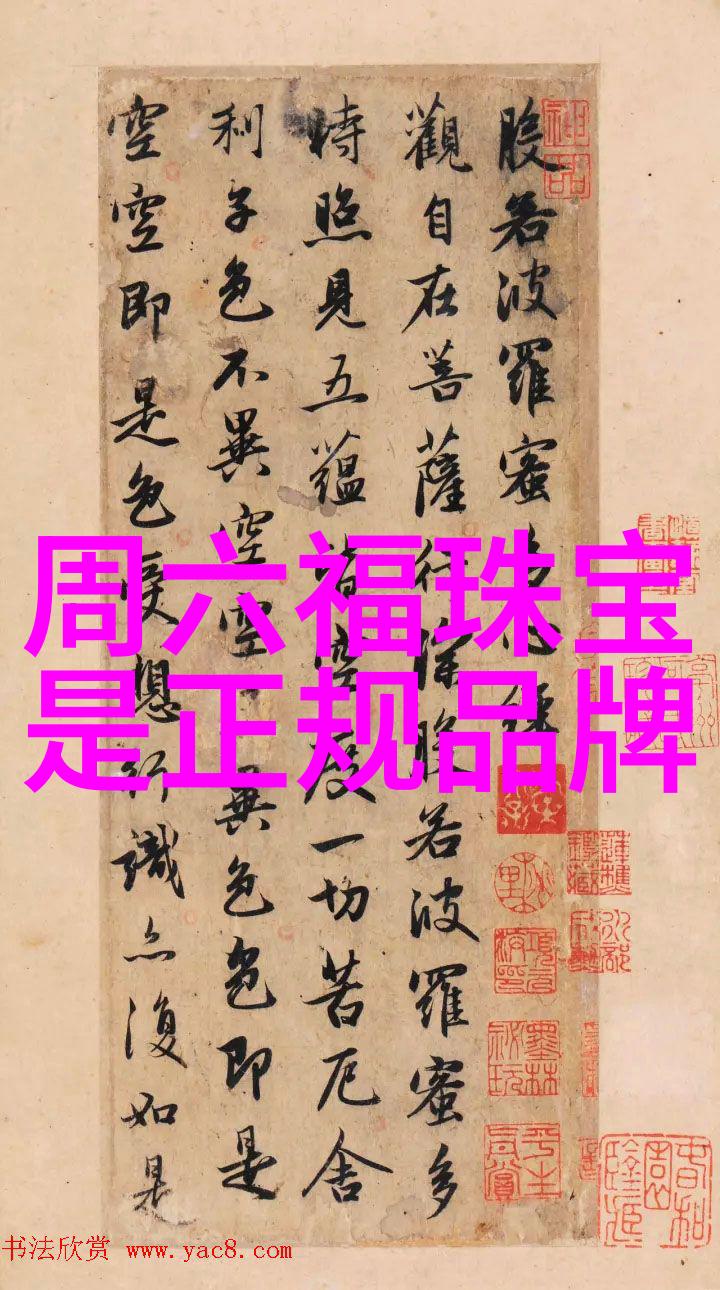 般若波羅蜜多心經
觀自在菩薩行深般若波羅蜜多
時照見五蘊皆空度一切苦厄舍
利子色不異空空不異色色即是
空空即是色受想行識亦復如是
周六福珠宝
是正规品牌
神品
书法欣赏 www.yac8.com